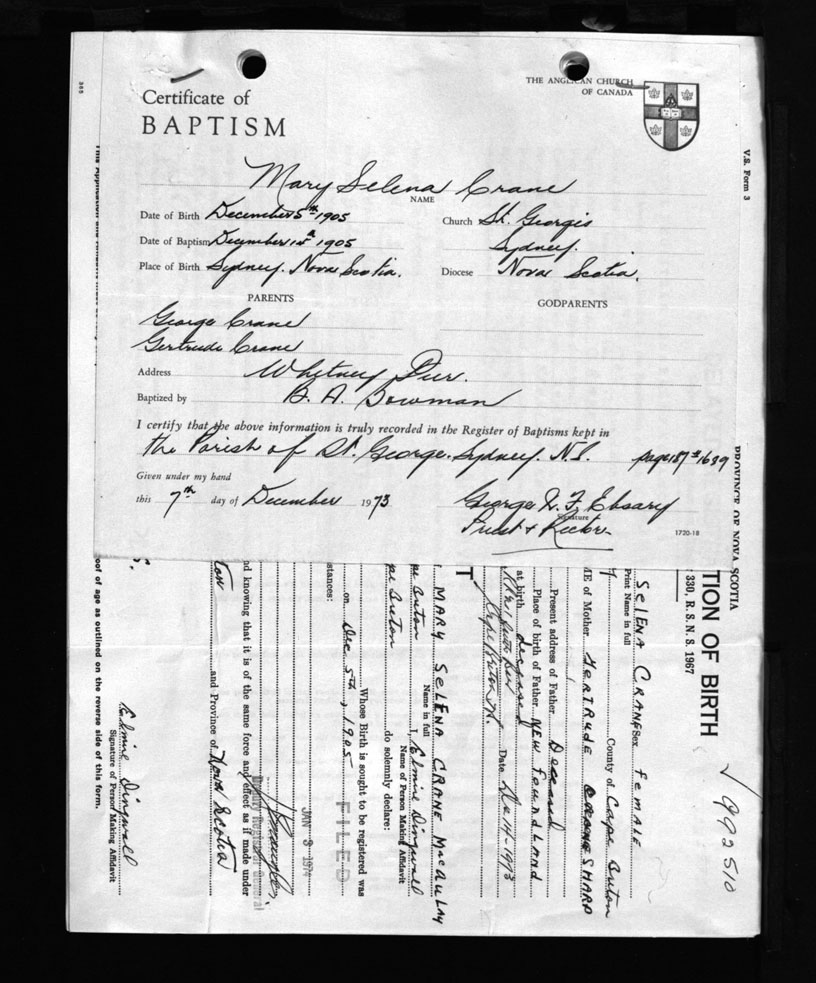 THE ANGLICAN CHURCH
OF CANADA
Certificate of
BAPTISM
Mary Selena Crane
NAME
Date of Birth December 5th 1905
Church St. Georges
Date of Baptism December 1905
Sydney.
Place of Birth Sydney. Nova Scotia.
Diocese Nova Scotia.
PARENTS
GODPARENTS
George Crane
Gertrude Crane
Address Whitney Pier.
Baptized by B. A. Bowman
I certify that the above information is truly recorded in the Register of Baptisms kept in
the Parish of St. George. Sydney. N.S. page 187 # 1639
Given under my hand
this 7th day of December 1973
George N. F. Ebsary
Signature
Priest & Rector
1720-18
V.S. Form 3
PROVINCE OF NOVA SCOTIA
TION OF BIRTH
330, R. S. N. S. 1967
992510
SELENA CRANE Sex FEMALE
Print Name in full
County of Cape Breton
ME of Mother GERTRUDE
Present address of Father Deceased
Place of birth of Father NEW FOUNDLAND
at birth deceased
Date Dec 14-1973
T
MARY SELENA CRANE MACAULAY
Name in full
pe Breton I, Elmire Dingwall
Name of Person Making Affidavit
pe Breton do solemnly declare:
Whose Birth is sought to be registered was
on Dec 5th, 1905
stances:
FILED
JAN 3 1974
Deputy Registrar General
nd knowing that it is of the same force and effect as if made under
ton and Province of Nova Scotia
Elmire Dingwall
Signature of Person Making Affidavit
oof of age as outlined on the reverse side of this form.